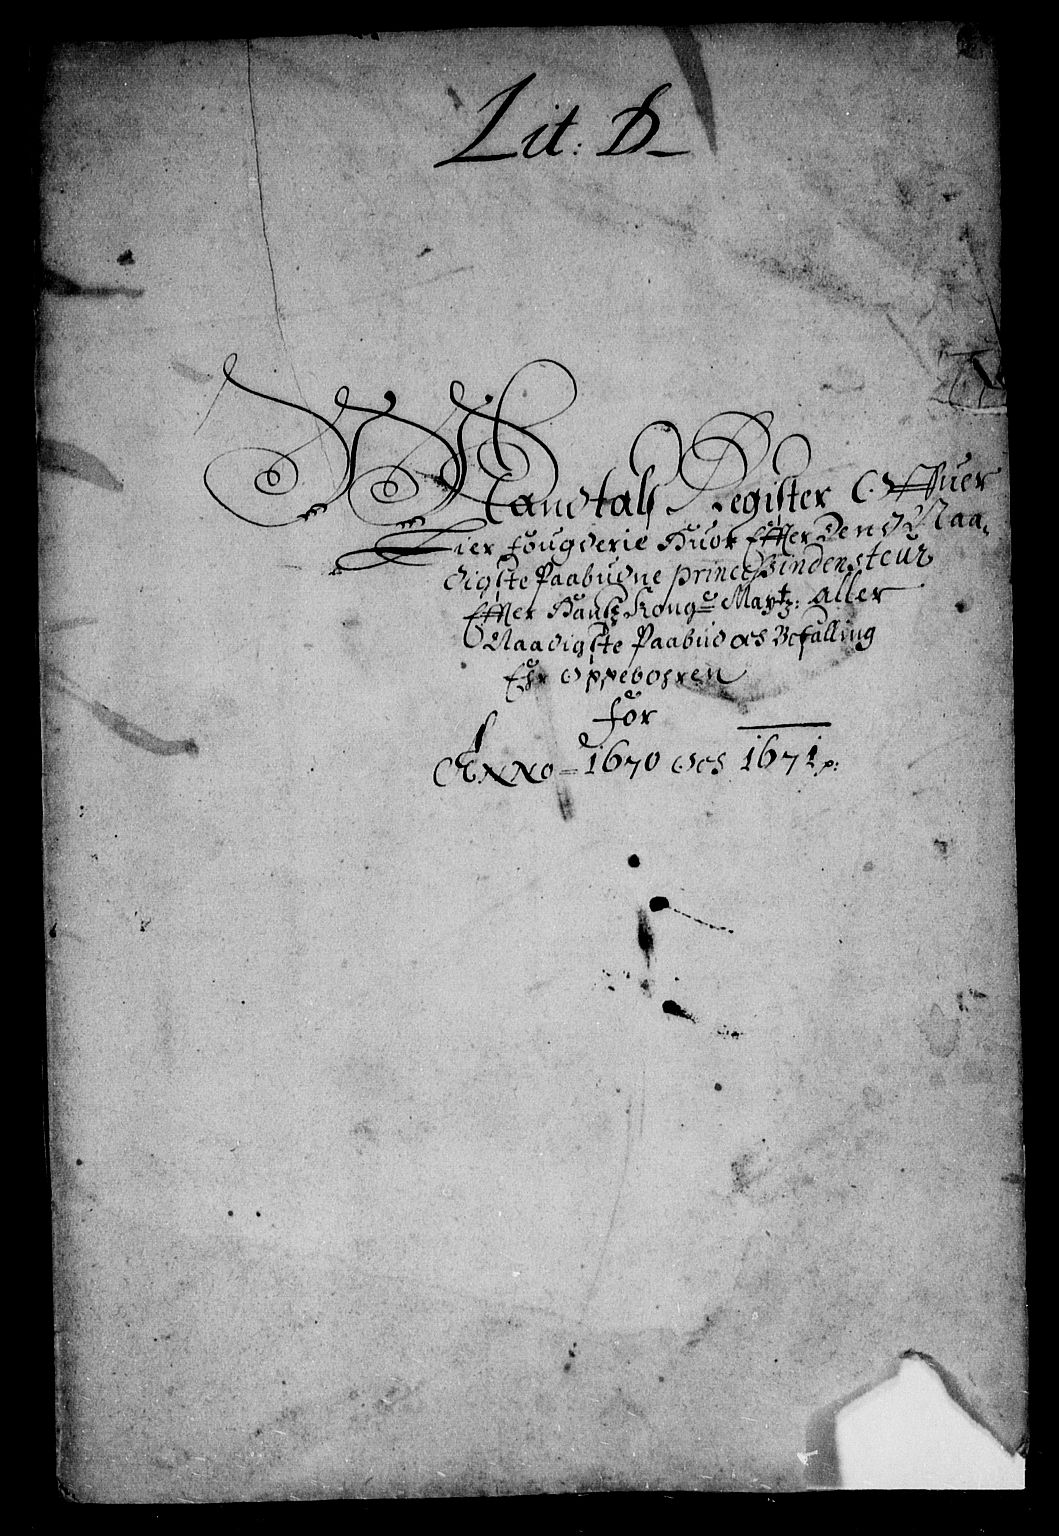 Lit: D
Mandtals Register Offuer
Lier fougderie Huor Effter den Naa,
digste Paabudne princessinden steur
Effter Hans Kong: Maytz: aller
Naadigste Paabud och Befalling
Ehr oppebohren
for
Anno 1670 och 1671 p: